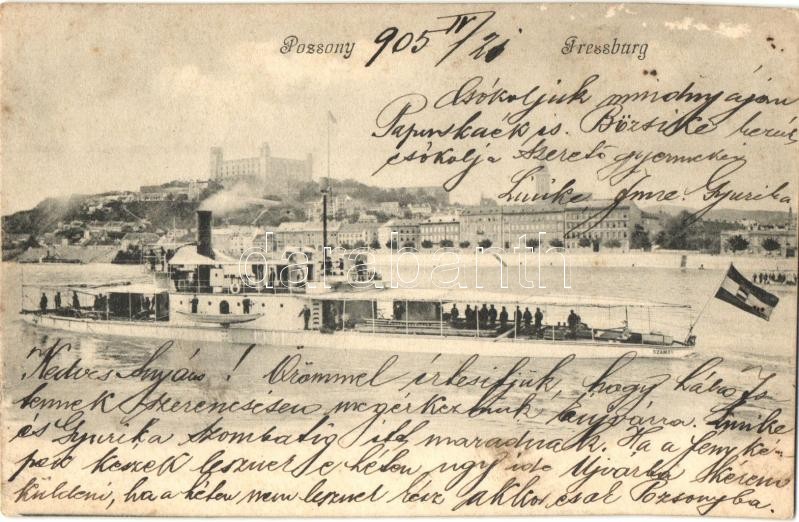 Pozsony 905 IV/21 Pressburg
Csókoljuk mindnyájan
Papuskáék is. Bözsike
csókolja szerető gyermekei
Linike Imre. Gyurika
darabanth.com
SZAMOS
Kedves Anyám! Örömmel értesítjük, hogy hála Is
tennek szerencsésen megérkeztünk Linike
és Gyurika szombatig itt maradnak. Ha a fényké-
pek készek lesznek e héten úgy ide Újvárba kérem
küldeni, ha a héten nem lesznek kész akkor csak Pozsonyba.